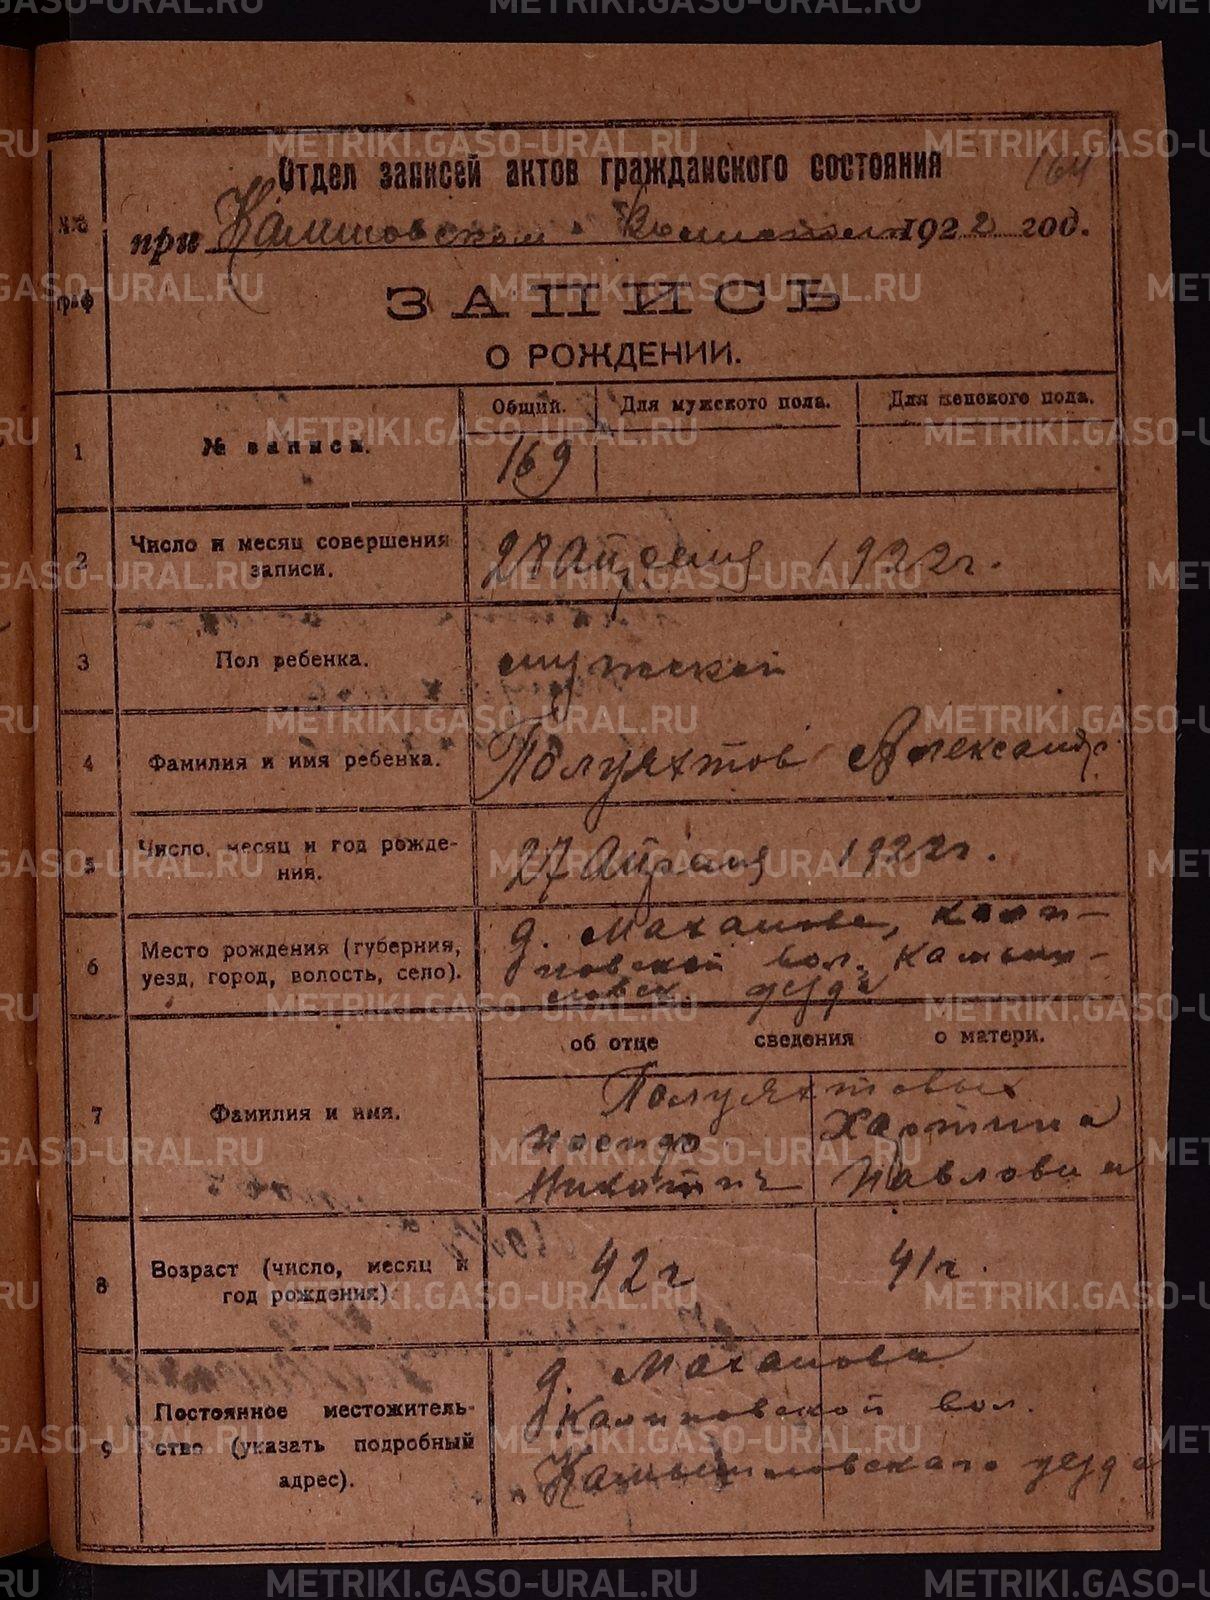 164
Отдел записей актов гражданского состояния
при Калиновском Волисполк 1922 год.
№№ граф
ЗАПИСЬ
О РОЖДЕНИИ.
Общий. Для мужского пола. Для женского пола.
1 № записи. 169
2 Число и месяц совершения записи. 27 Апреля 1922 г.
3 Пол ребенка. мужской
4 Фамилия и имя ребенка. Полуяхтов Александр
5 Число, месяц и год рождения. 27 Апреля 1922 г.
6 Место рождения (губерния, уезд, город, волость, село).
д. Маханова, Кали-
новской вол. Камыш-
ловск уезда
об отце сведения о матери.
7 Фамилия и имя. Полуяхтовых
Харитина
Никитич Павловна
8 Возраст (число, месяц и год рождения). 42 г 41 г.
9 Постоянное местожительство (указать подробный адрес).
д. Маханова
Калиновской вол.
Камышловского уезда
METRIKI.GASO-URAL.RU